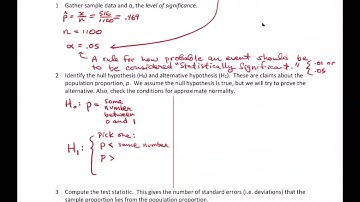 1 Gather sample data and α, the level of significance.
p̂ = x/n = 516/1100 = .469
n = 1100
α = .05
A rule for how probable an event should be
to be considered "statistically significant." {.01 or .05
2 Identify the null hypothesis (H₀) and alternative hypothesis (H₁). These are claims about the
population proportion, p. We assume the null hypothesis is true, but we will try to prove the
alternative. Also, check the conditions for approximate normality.
H₀: p = some number between 0 and 1
H₁: { pick one:
p < same number
p >
3 Compute the test statistic. This gives the number of standard errors (i.e. deviations) that the
sample proportion lies from the population proportion.